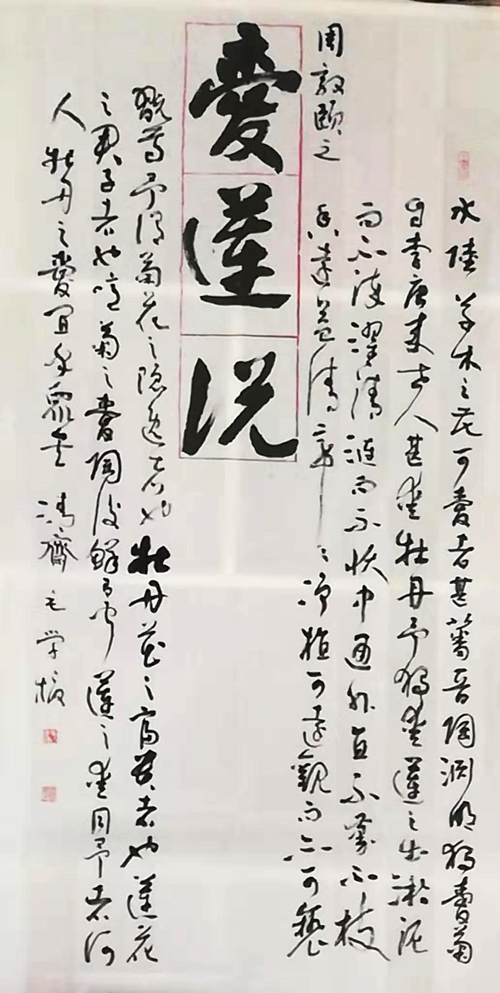 水陸草木之花可愛者甚蕃晋陶渊明独愛菊
自李唐来世人甚愛牡丹予独愛蓮之出淤泥
而不染濯清漣而不妖中通外直不蔓不枝
香遠益清亭〻净植可遠觀而不可褻
周敦颐之
愛蓮说
翫焉予谓菊花之隐逸者也牡丹花之富贵者也蓮花
之君子者也噫菊之愛陶後鲜有闻蓮之愛同予者何
人牡丹之愛宜乎众矣 清齋